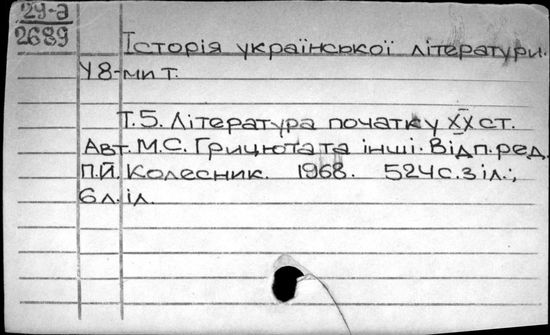 29-д
2689
Історія української літератури.
У 8-ми т.
Т.5. Література початку ХХ ст.
Авт. М.С. Грицюта та інші. Відп. ред.
П.Й. Колесник. 1968. 524 с. з іл.;
6 л. іл.